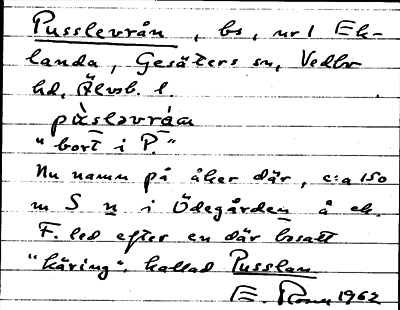 Pusslevrån, bs, nr 1 Ek-
landa, Gesäters sn, Vedbo
hd, Älvsb. l.
pùslǝvrá̱a
"bort i P."
Nu namn på åker där, c:a 150
m S n i Ödegården å ek.
F. led efter en där bosatt
"käring", kallad Pusslan
E. 1962